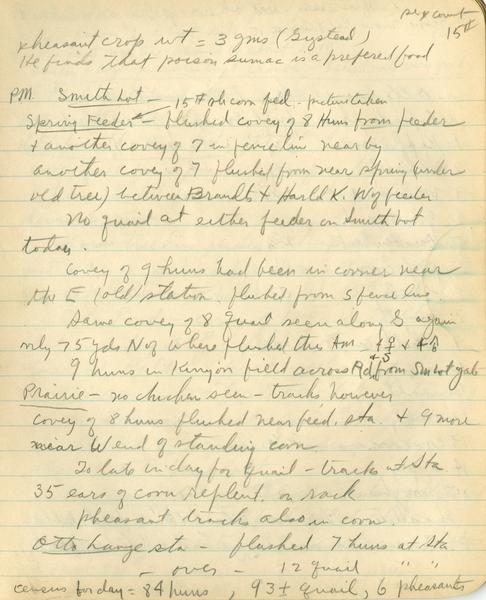 sex count
15th
pheasant crop wt = 3 gms (Gystead)
He finds that poison sumac is a prefered food
P.M. Smith Lot - 15th oh corn fed - picture taken
Spring Feeder - flushed covey of 8 Huns from feeder
& another covey of 7 in fence line near by
another covey of 7 flushed from near spring (under
old tree) between Brandts & Harld K. W of feeder
No quail at either feeder on Smith Lot
today.
Covey of 9 huns had been in corner near
the E (old) station flushed from S fence line
Same covey of 8 Quail seen along S again
only 75 yds N of where flushed this Am 4♀ & 4♂
9 huns in Kinyon field across Rd & S from Sm Lot gate
Prairie - no chicken seen - tracks however
covey of 8 huns flushed near feed. sta. & 9 more
near W end of standing corn.
To late in day for quail - tracks at Sta
35 ears of corn replent. on rack
pheasant tracks also in corn.
Otto Lange sta - flushed 7 huns at Sta.
- over - 12 quail " "
census for day = 84 huns, 93± quail, 6 pheasants